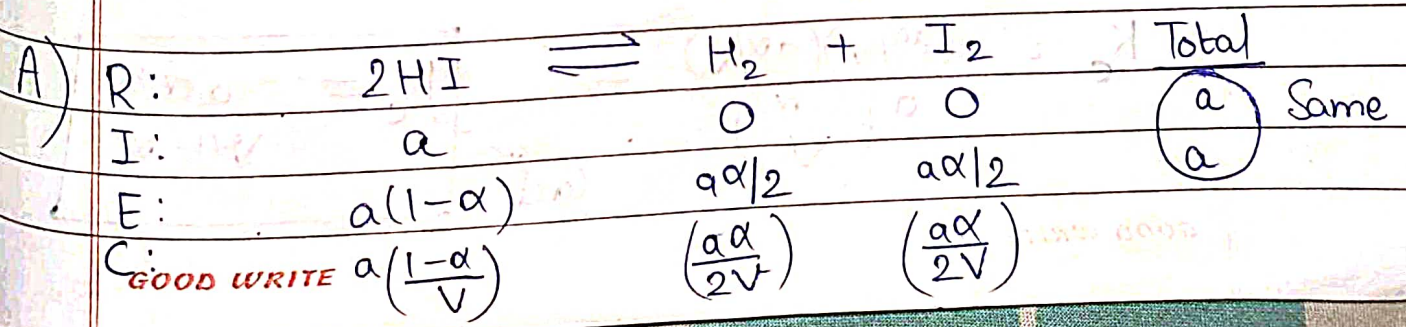 A) R: 2HI ⇌ H₂ + I₂ Total
I: a 0 0 a Same
E: a(1-α) aα/2 aα/2 a
C: a((1-α)/V) (aα/2V) (aα/2V)
GOOD WRITE